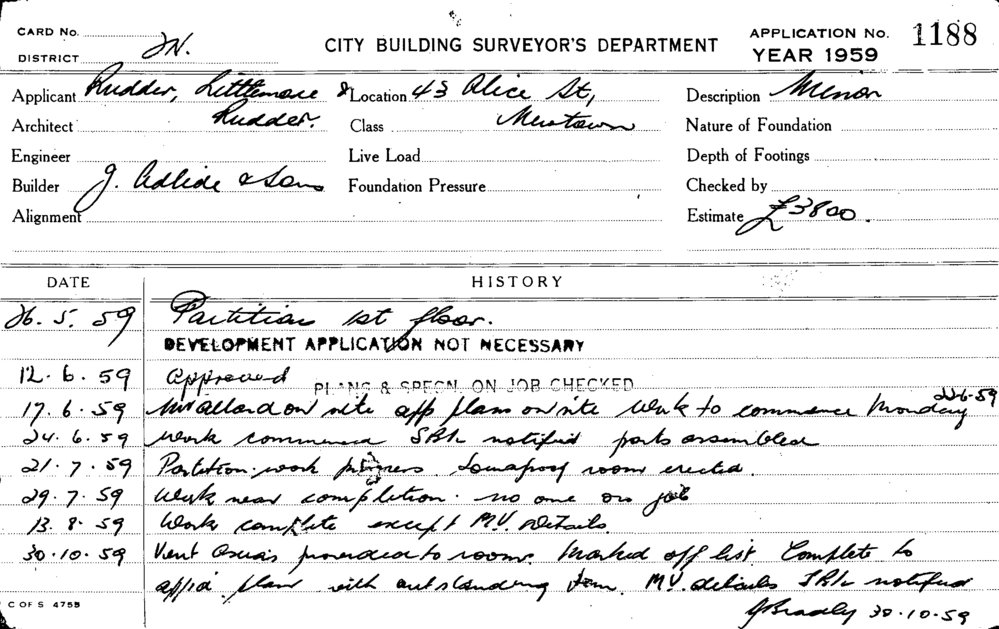 CARD No.
DISTRICT 2N.
CITY BUILDING SURVEYOR'S DEPARTMENT
APPLICATION No. 1188
YEAR 1959
Applicant Rudder, Littlemore &
Location 43 Alice St,
Description Minor
Architect Rudder.
Class Newtown
Nature of Foundation
Engineer
Live Load
Depth of Footings
Builder J. Adlide & Sons
Foundation Pressure
Checked by
Alignment
Estimate £3800.
DATE HISTORY
26. 5. 59 Partition 1st floor.
DEVELOPMENT APPLICATION NOT NECESSARY
12. 6. 59 Approved
PLANS & SPECN. ON JOB CHECKED
17. 6. 59 on site app plans on site Work to commence Monday 22-6-59
24. 6. 59 work commenced notified parts assembled
21. 7. 59 Partition work progress. room erected.
29. 7. 59 Work near completion. no one on job
13. 8. 59 Work complete except M.V. Details.
30. 10. 59 Vent provided to rooms. Marked off list Complete to
app'd. plan with outstanding item. M.V. details notified
J Bradly 30-10-59
C OF S 4755